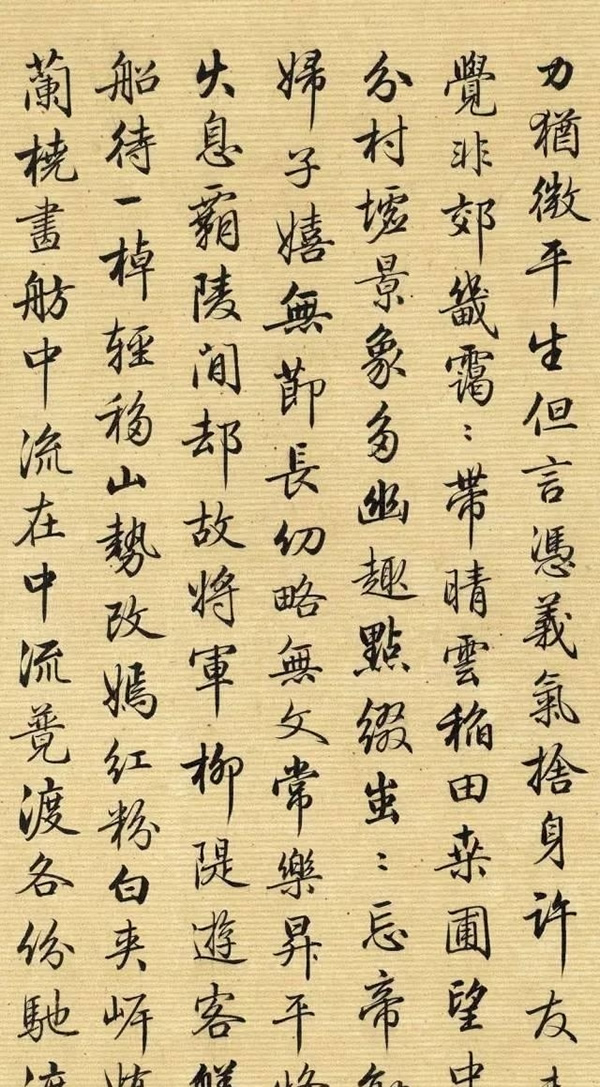 力猶微平生但言憑義氣捨身許友
覺非郊畿靄〻帶晴雲稲田桒圃望中
分村墟景象多幽趣點缀蚩〻忘帝
婦子嬉無節長幼略無文常樂昇平
火息霸陵間却故將軍柳隄遊客
船待一棹輕移山勢改嫣红粉白夾岍
蘭橈畵舫中流在中流競渡各份馳